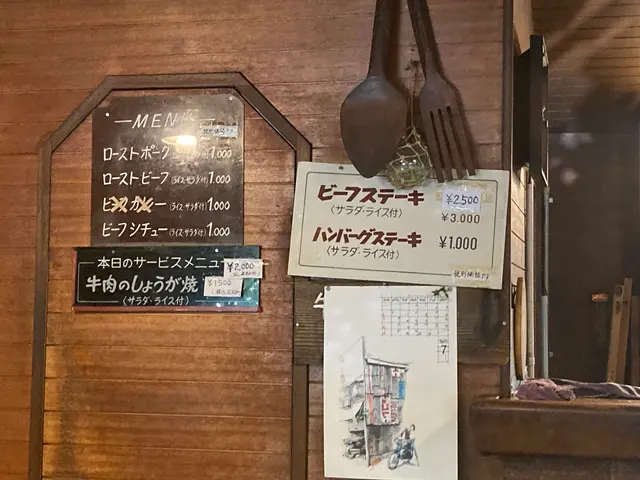 MENU
ローストポーク(ライス・サラダ付)1.000
ローストビーフ(ライス・サラダ付)1.000
ビーフカレー(ライス・サラダ付)1.000
ビーフシチュー(ライス・サラダ付)1.000
本日のサービスメニュー
¥2,000
牛肉のしょうが焼
¥1500
(サラダ・ライス付)
ビーフステーキ
¥2500
(サラダ・ライス付)
¥3.000
ハンバーグステーキ
¥1.000
(サラダ・ライス付)
7